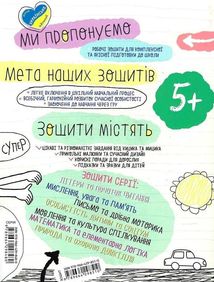 МИ ПРОПОНУЄМО
РОБОЧІ ЗОШИТИ ДЛЯ КОМПЛЕКСНОЇ
ТА ЯКІСНОЇ ПІДГОТОВКИ ДО ШКОЛИ
МЕТА НАШИХ ЗОШИТІВ
• ЛЕГКЕ ВКЛЮЧЕННЯ В ШКІЛЬНИЙ НАВЧАЛЬНИЙ ПРОЦЕС
• ВСЕБІЧНИЙ, ГАРМОНІЙНИЙ РОЗВИТОК СУЧАСНОЇ ОСОБИСТОСТІ
• ЗАОХОЧЕННЯ ДО НАВЧАННЯ ЧЕРЕЗ ГРУ
5+
ЗОШИТИ МІСТЯТЬ
СУПЕР
• ЦІКАВІ ТА РІЗНОМАНІТНІ ЗАВДАННЯ ВІД ЮДИКА ТА МАШИКА
• ПРИКОЛЬНІ МАЛЮНКИ ТА СУЧАСНИЙ ДИЗАЙН
• КОРИСНІ ПОРАДИ ДЛЯ ДОРОСЛИХ
• ПІДКАЗКИ ТА ЗРАЗКИ ДЛЯ ДІТЕЙ
ЗОШИТИ СЕРІЇ:
ЛІТЕРИ ТА НАВЧАННЯ ЧИТАННЯ
МИСЛЕННЯ, УВАГА ТА ПАМ'ЯТЬ
ПИСЬМО ТА ДРІБНА МОТОРИКА
ОСОБИСТІСТЬ ДИТИНИ ТА СОЦІУМ
МОВЛЕННЯ ТА КУЛЬТУРА СПІЛКУВАННЯ
МАТЕМАТИКА ТА ЕЛЕМЕНТАРНО ЛОГІКА
ПРИРОДА ТА ДОВКІЛЛЯ